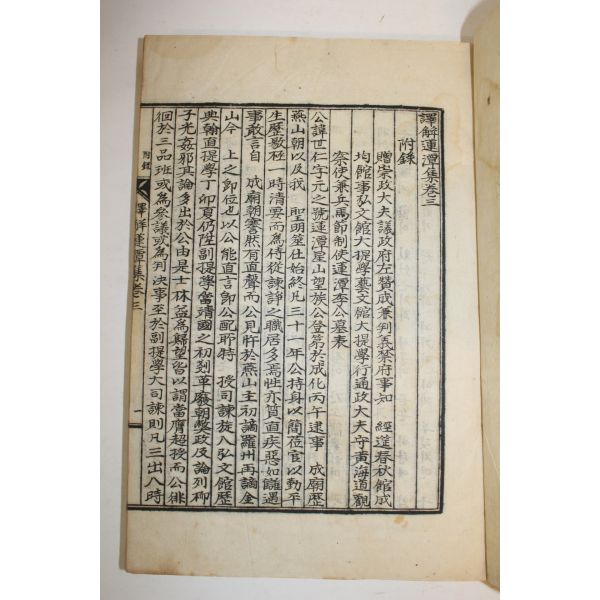 譯解蓮潭集卷三
附錄
贈崇政大夫議政府左贊成兼判義禁府事知　經筵春秋館成
均館事弘文館大提學藝文館大提學行通政大夫守黃海道觀
察使兼兵馬節制使蓮潭李公墓表
公諱世仁字元之號蓮潭星山望族公登第於成化丙午逮事　成廟歷
燕山朝以及我　聖明筮仕始終凡三十一年公持身以簡莅官以勤平
生歷敭極一時清要而為侍從諫諍之職居多焉性亦質直疾惡如讎遇
事敢言自　成廟朝謇然有直聲而公見忤於燕山主初謫羅州再謫金
山今　上之即位也以公能直言即公配所特　授司諫旋入弘文館歷
典翰直提學丁卯夏仍陞副提學當靖國之初刬革廢朝獘政及論列柳
子光姦邪其論多出於公由是士林益為歸望皆以謂當膺超授而公徘
徊於三品班或為參議或為判決事至於副提學大司諫則凡三出入時
附錄
譯解蓮潭集卷三
一